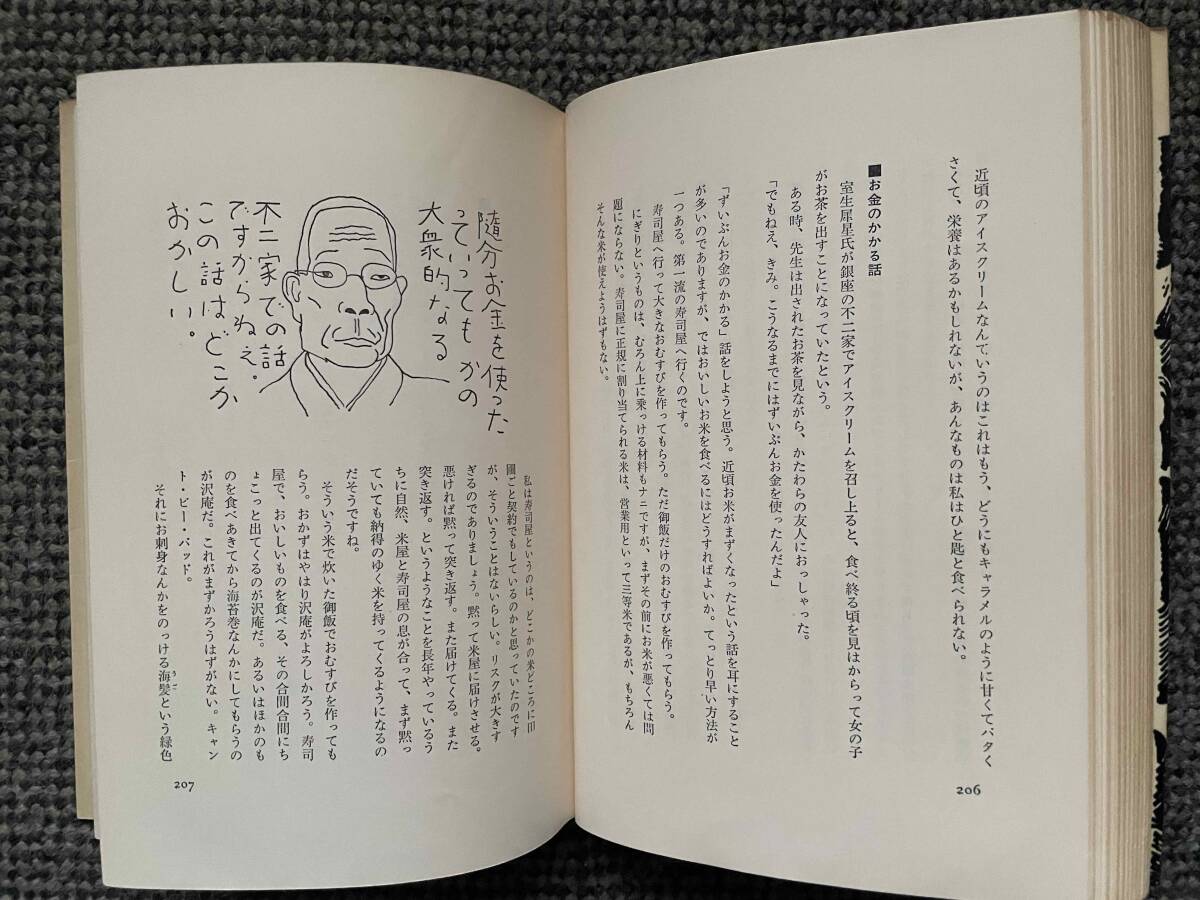 近頃のアイスクリームなんていうのはこれはもう、どうにもキャラメルのように甘くてバタく
さくて、栄養はあるかもしれないが、あんなものは私はひと匙と食べられない。
■お金のかかる話
室生犀星氏が銀座の不二家でアイスクリームを召し上ると、食べ終る頃を見はからって女の子
がお茶を出すことになっていたという。
ある時、先生は出されたお茶を見ながら、かたわらの友人におっしゃった。
「でもねえ、きみ。こうなるまでにはずいぶんお金を使ったんだよ」
「ずいぶんお金のかかる」話をしようと思う。近頃お米がまずくなったという話を耳にすること
が多いのでありますが、ではおいしいお米を食べるにはどうすればよいか。てっとり早い方法が
一つある。第一流の寿司屋へ行くのです。
寿司屋へ行って大きなおむすびを作ってもらう。ただ御飯だけのおむすびを作ってもらう。
にぎりというものは、むろん上に乗っける材料もナニですが、まずその前にお米が悪くては問
題にならない。寿司屋に正規に割り当てられる米は、営業用といって三等米であるが、もちろん
そんな米が使えようはずもない。
206
隨分お金を使った
っていっても かの
大衆的なる
不二家での話
ですからねえ。
この話はどこか
おかしい。
私は寿司屋というのは、どこかの米どころに田
圃ごと契約でもしているのかと思っていたのです
が、そういうことはないらしい。リスクが大きす
ぎるのでありましょう。黙って米屋に届けさせる。
悪ければ黙って突き返す。また届けてくる。また
突き返す。というようなことを長年やっているう
ちに自然、米屋と寿司屋の息が合って、まず黙っ
ていても納得のゆく米を持ってくるようになるの
だそうですね。
そういう米で炊いた御飯でおむすびを作っても
らう。おかずはやはり沢庵がよろしかろう。寿司
屋で、おいしいものを食べる、その合間合間にち
ょこっと出てくるのが沢庵だ。あるいはほかのも
のを食べあきてから海苔巻なんかにしてもらうの
が沢庵だ。これがまずかろうはずがない。キャン
ト・ビー・バッド。
それにお刺身なんかをのっける海髪という緑色
うご
207